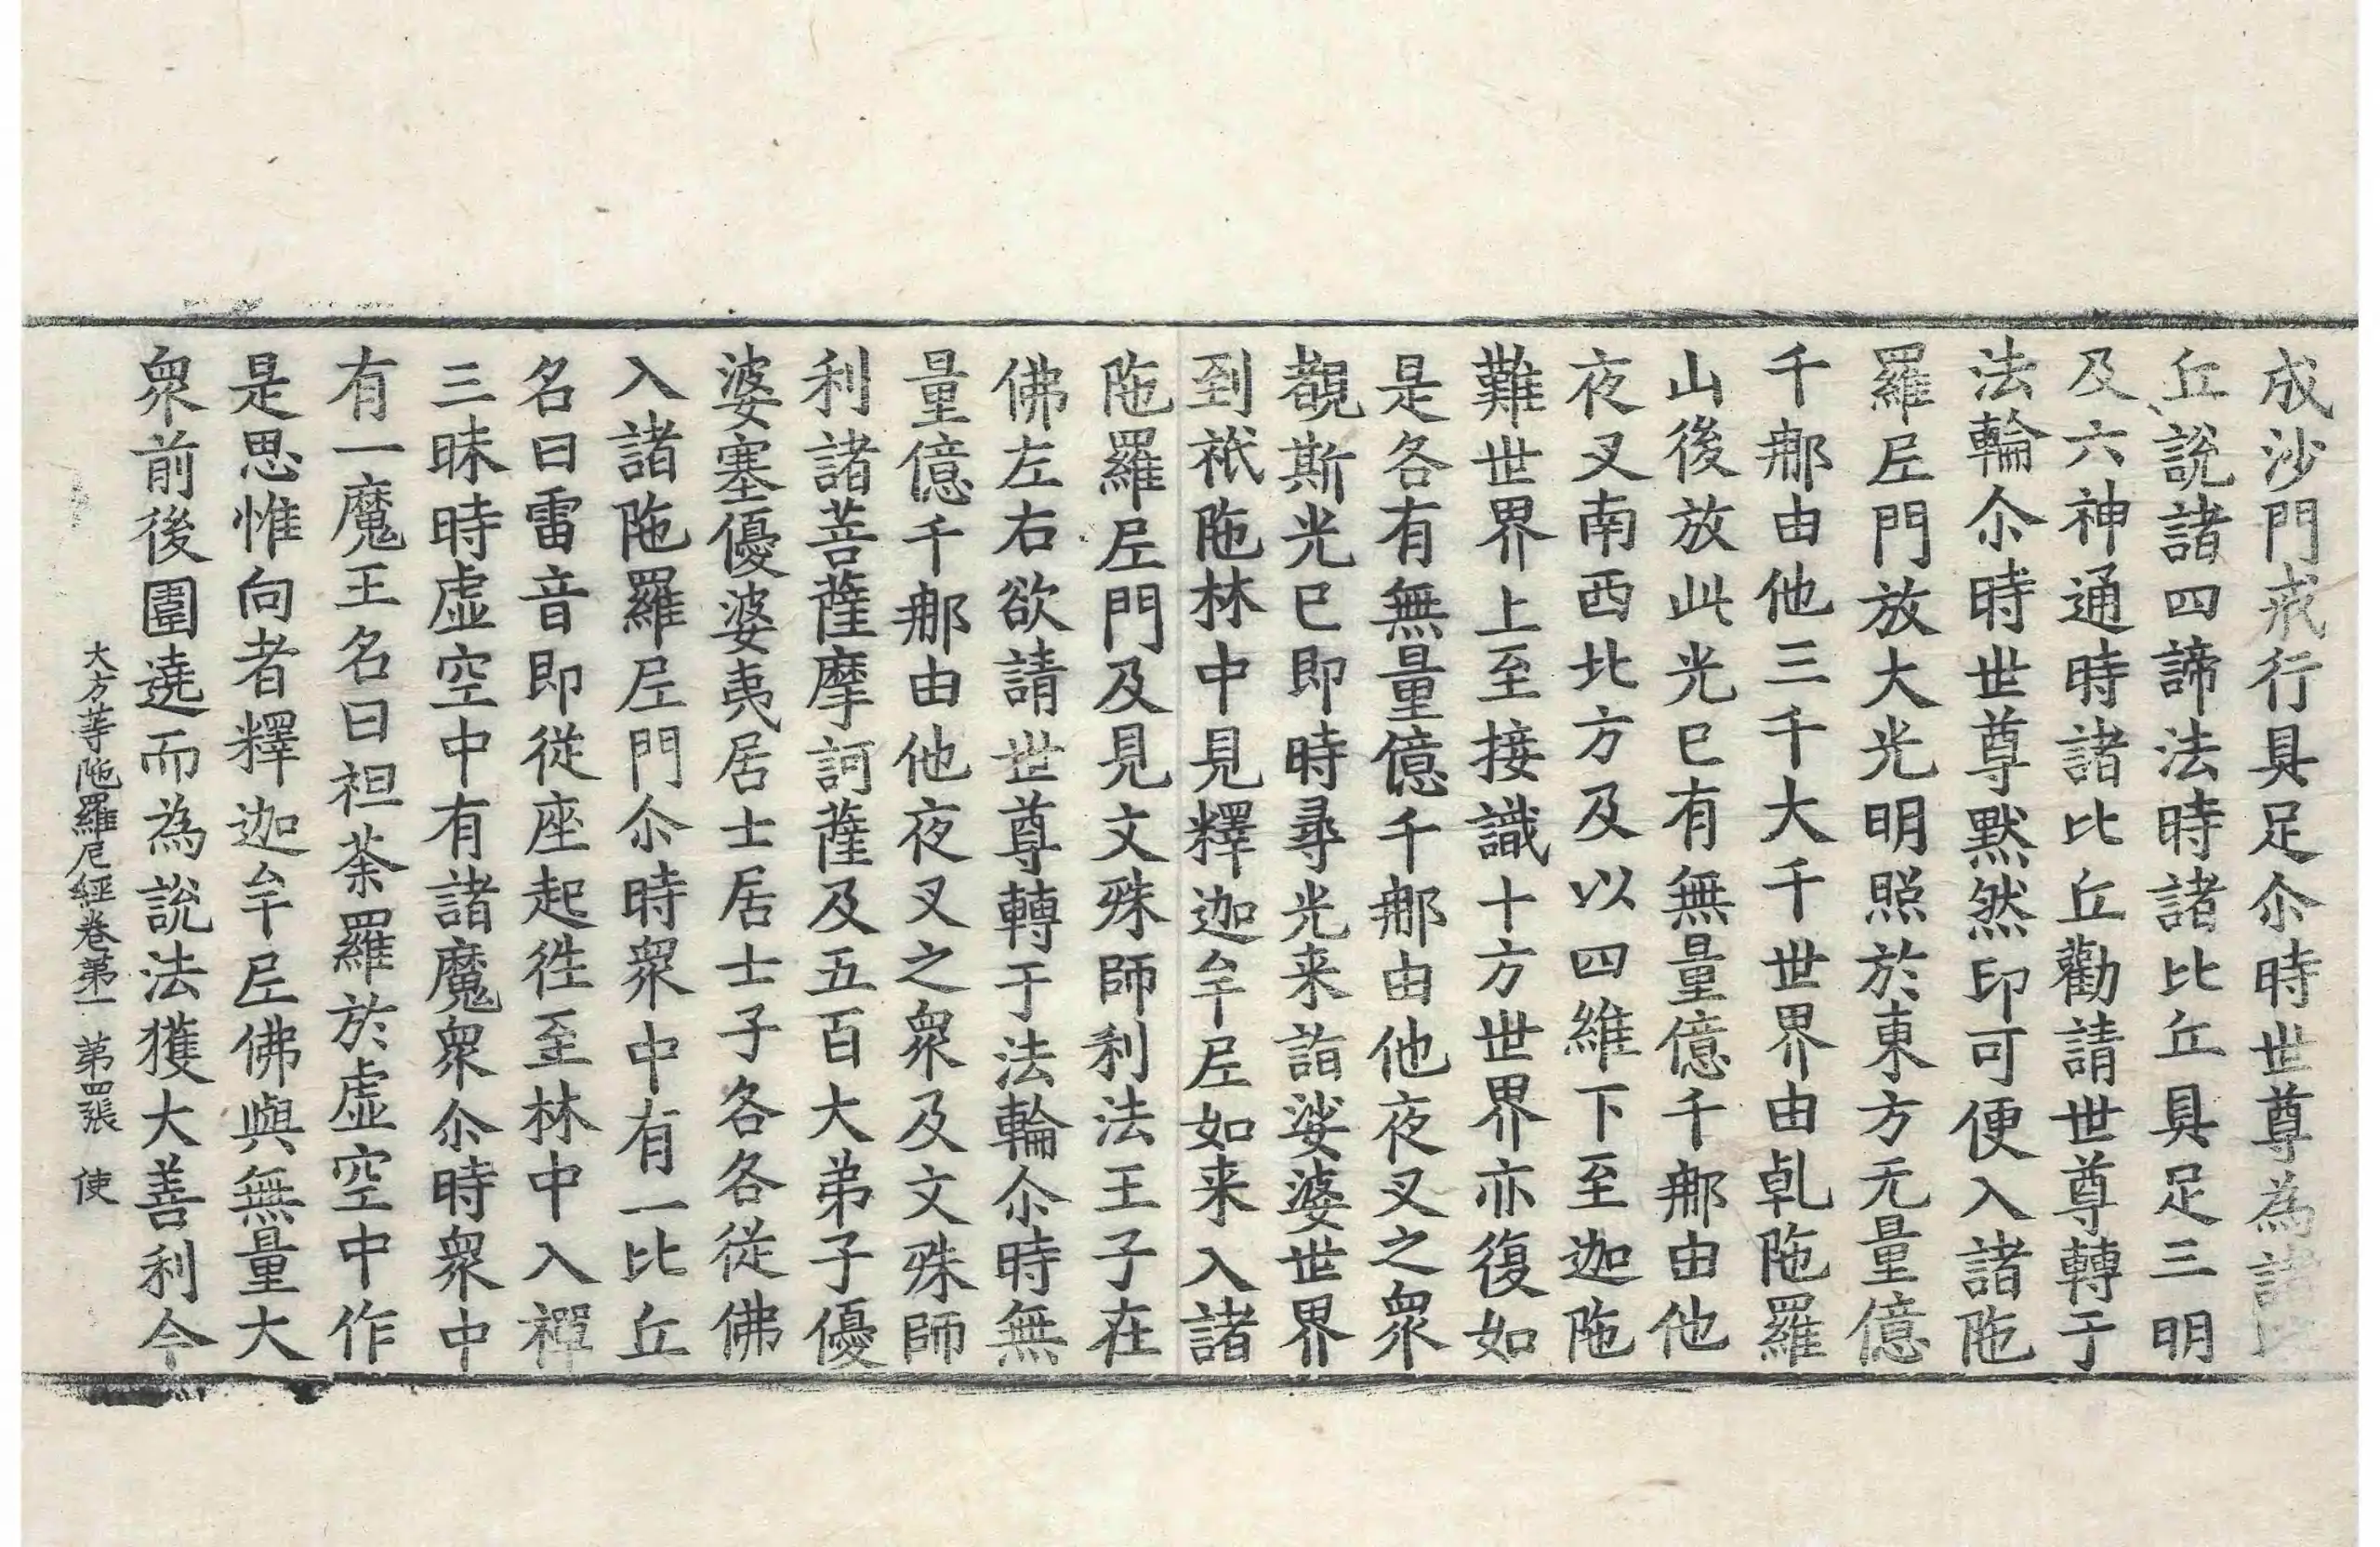 成沙門戒行具足尒時世尊為諸
丘說諸四諦法時諸比丘具足三明
及六神通時諸比丘勸請世尊轉于
法輪尒時世尊默然印可便入諸陁
羅𡰱門放大光明照於東方无量億
千那由他三千大千世界由乹陁羅
山後放此光已有無量億千那由他
夜叉南西北方及以四維下至迦陁
難世界上至接識十方世界亦復如
是各有無量億千那由他夜叉之衆
覩斯光已即時尋光来詣娑婆世界
到祇陁林中見釋迦牟𡰱如来入諸
陁羅𡰱門及見文殊師利法王子在
佛左右欲請世尊轉于法輪尒時無
量億千那由他夜叉之衆及文殊師
利諸菩薩摩訶薩及五百大弟子優
婆塞優婆夷居士居士子各各從佛
入諸陁羅𡰱門尒時衆中有一比丘
名曰雷音即從座起徃至林中入禪
三昧時虛空中有諸魔衆尒時衆中
有一魔王名曰袒荼羅於虛空中作
是思惟向者釋迦牟𡰱佛與無量大
衆前後圍遶而為說法獲大善利今
大方等陁羅尼經卷第一 第四張 使